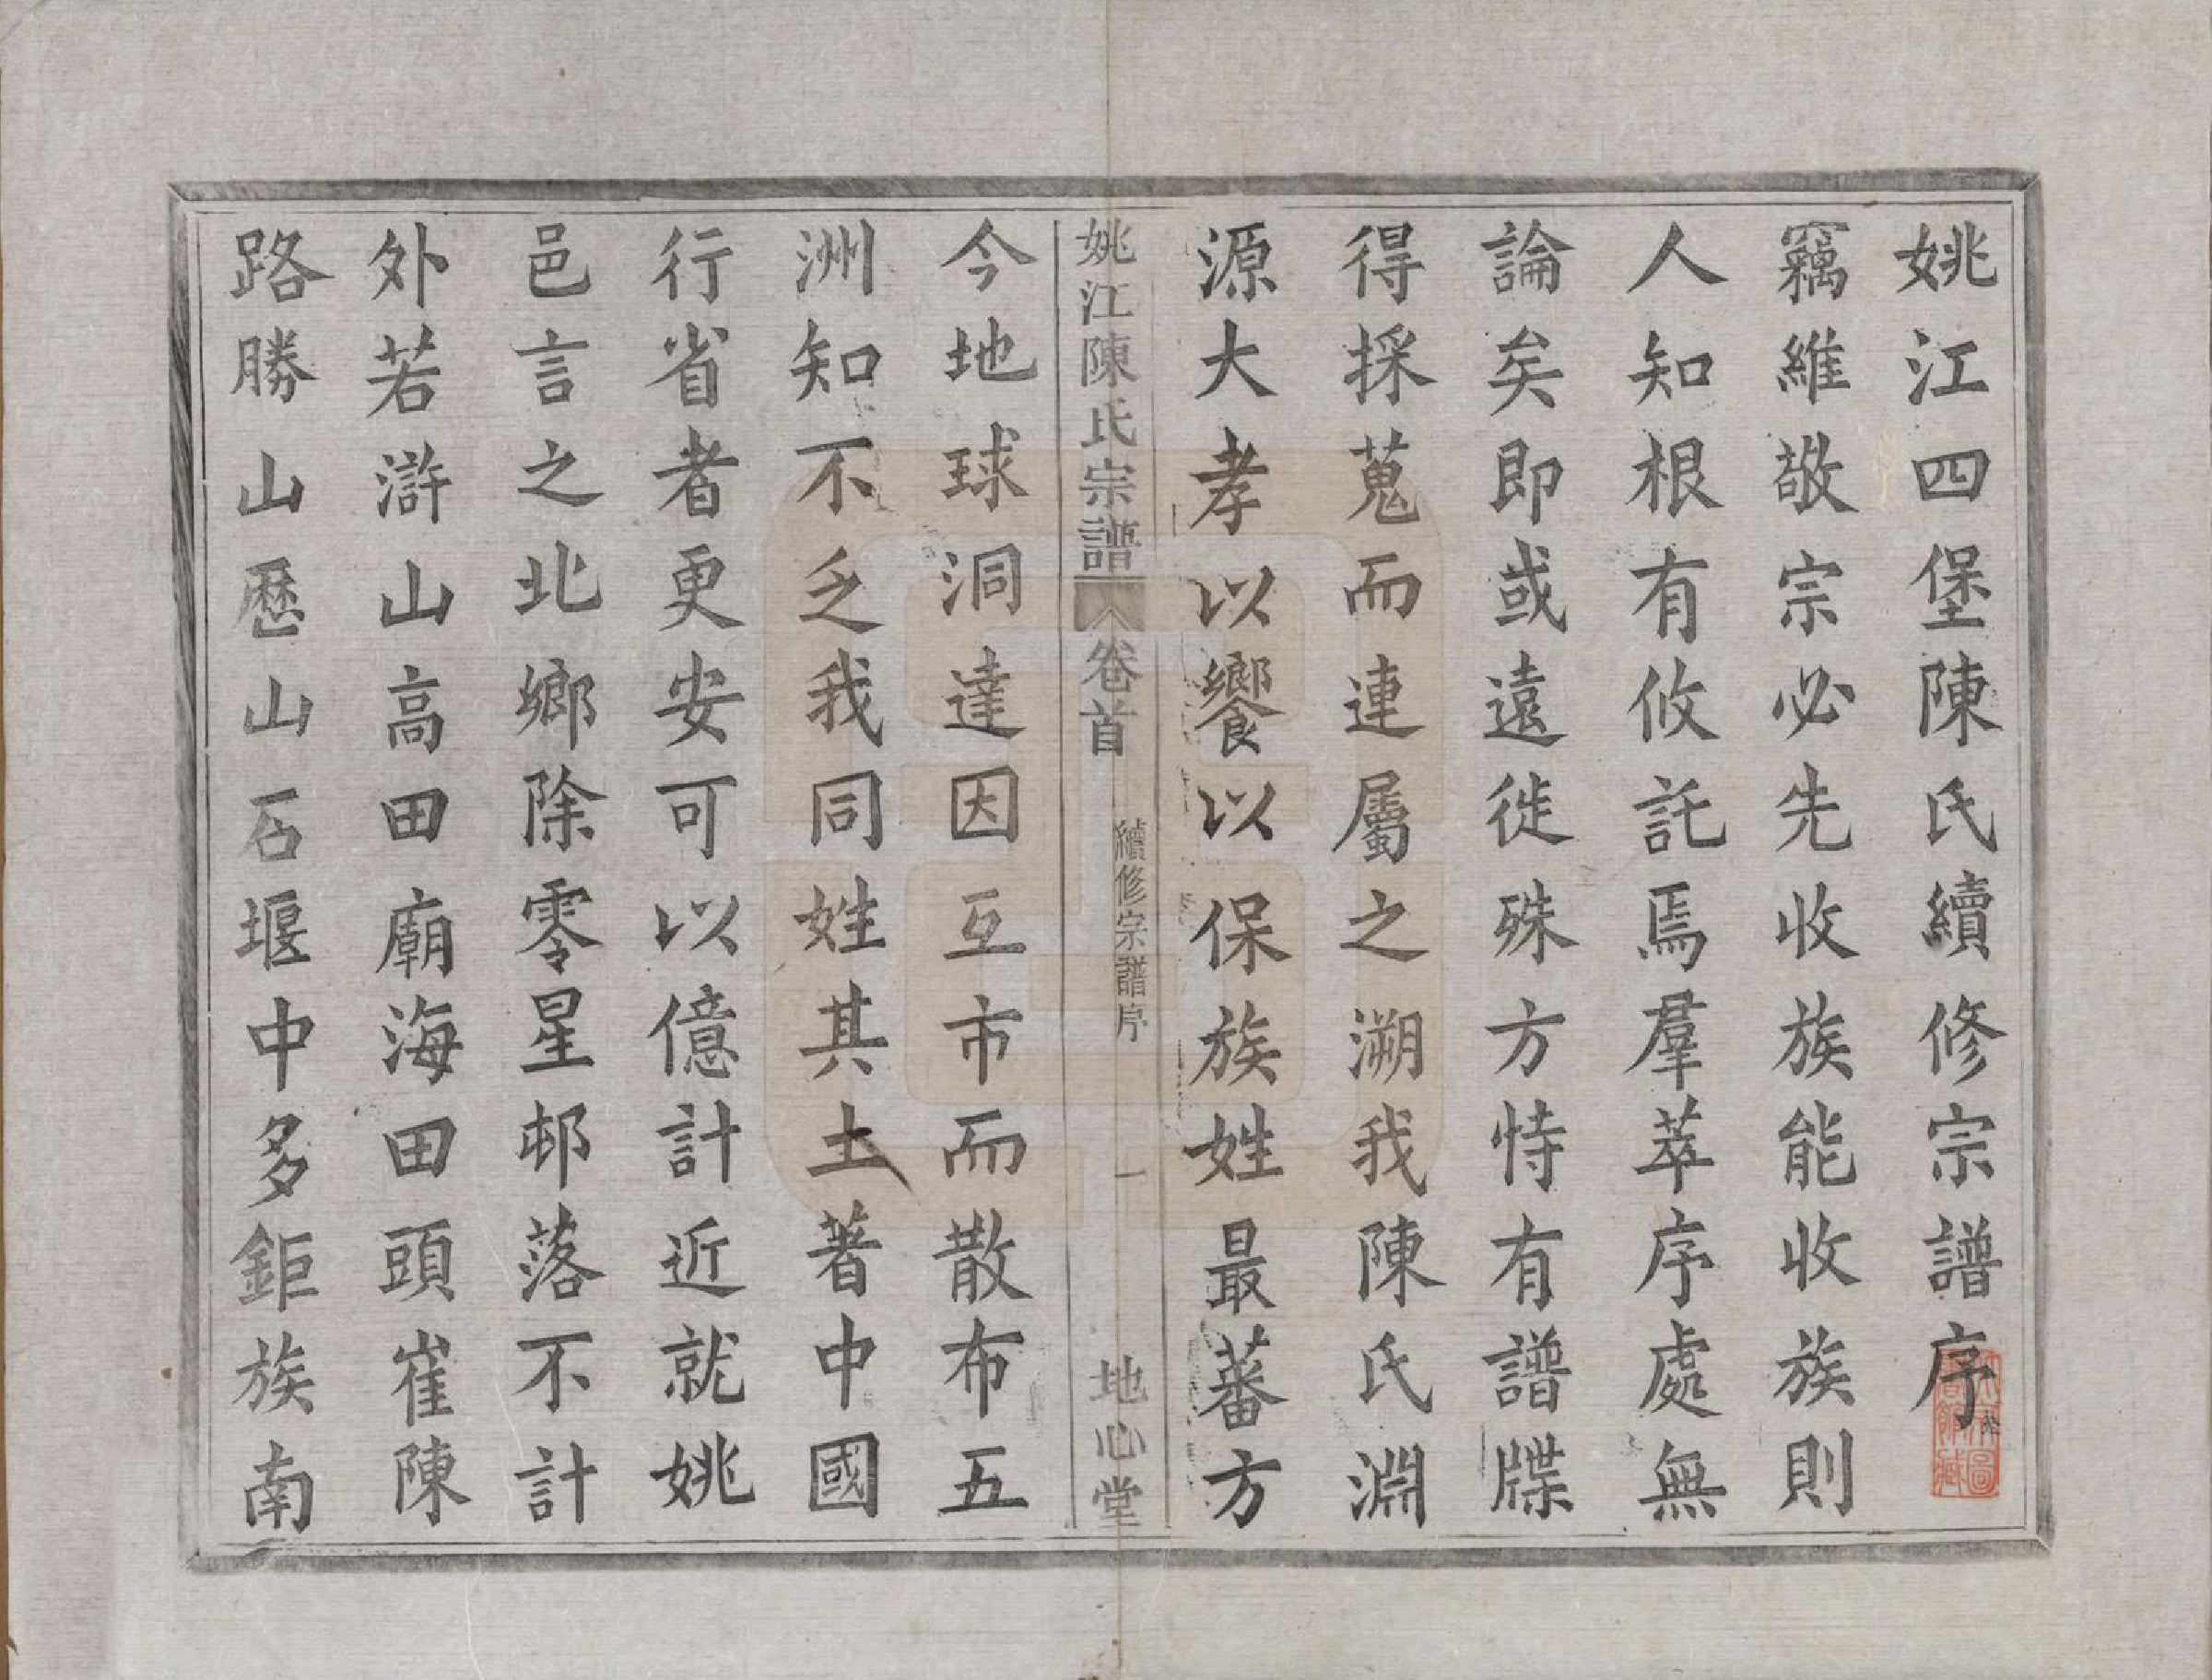 姚江四堡陳氏續修宗譜序
竊維敬宗必先收族能收族則
人知根有攸託焉羣萃序處無
論矣即或遠徙殊方恃有譜牒
得採蒐而連屬之溯我陳氏淵
源大孝以饗以保族姓最蕃方
姚江陳氏宗譜 卷首 續修宗譜序 一 地心堂
今地球洞達因互市而散布五
洲知不乏我同姓其土著中國
行省者更安可以億計近就姚
邑言之北鄉除零星邨落不計
外若滸山高田廟海田頭崔陳
路勝山歷山石堰中多鉅族南